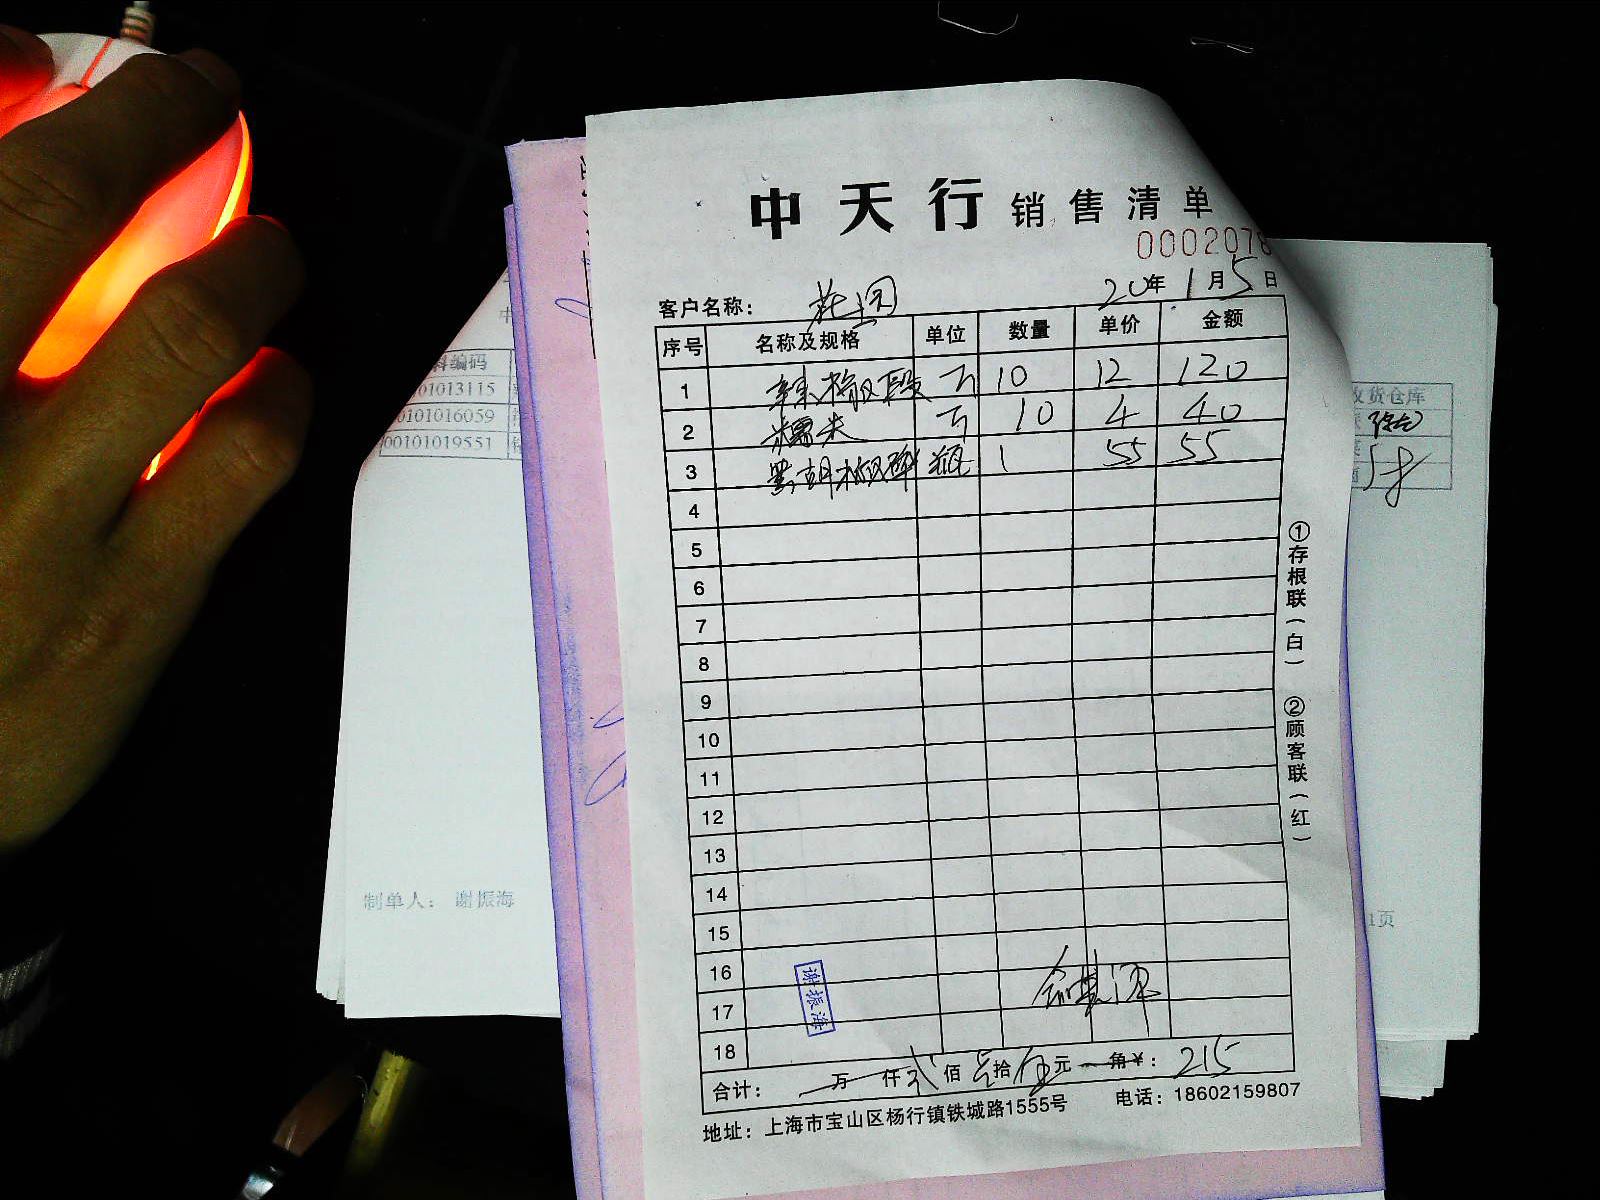 中天行 销售清单
0002078
客户名称：
20年1月5日
序号 名称及规格 单位 数量 单价 金额
1 辣椒段 斤 10 12 120
2 糯米 斤 10 4 40
3 黑胡椒碎 瓶 1 55 55
4
5
6
7
8
9
10
11
12
13
14
15
16
17
18
谢振海
合计： 万 仟 贰 佰 壹 拾 伍 元 角 ¥：215
地址：上海市宝山区杨行镇铁城路1555号 电话：18602159807
①存根联（白）
②顾客联（红）
料编码
01013115
00101016059
00101019551
制单人： 谢振海
收货仓库
1页